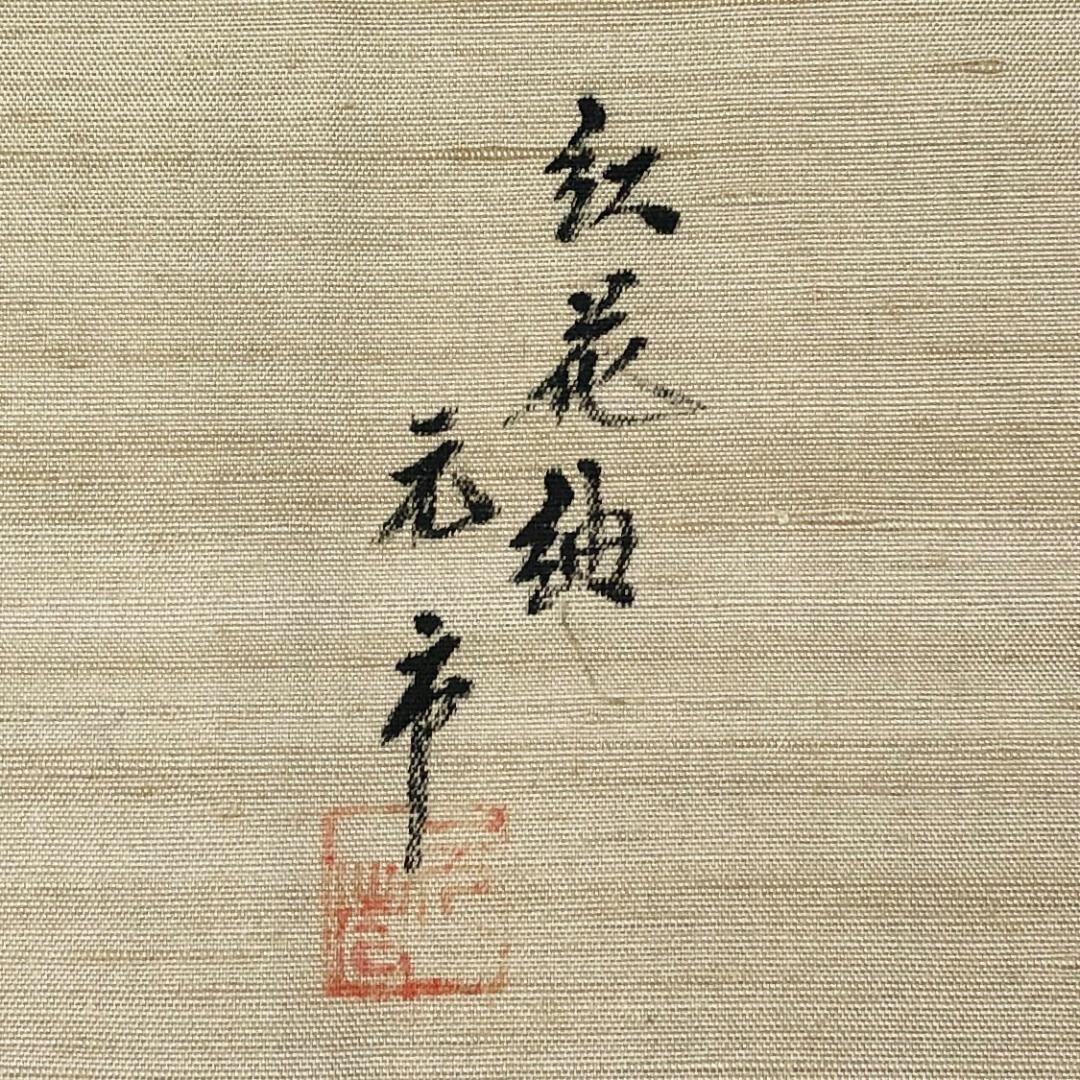 紅花紬
元市